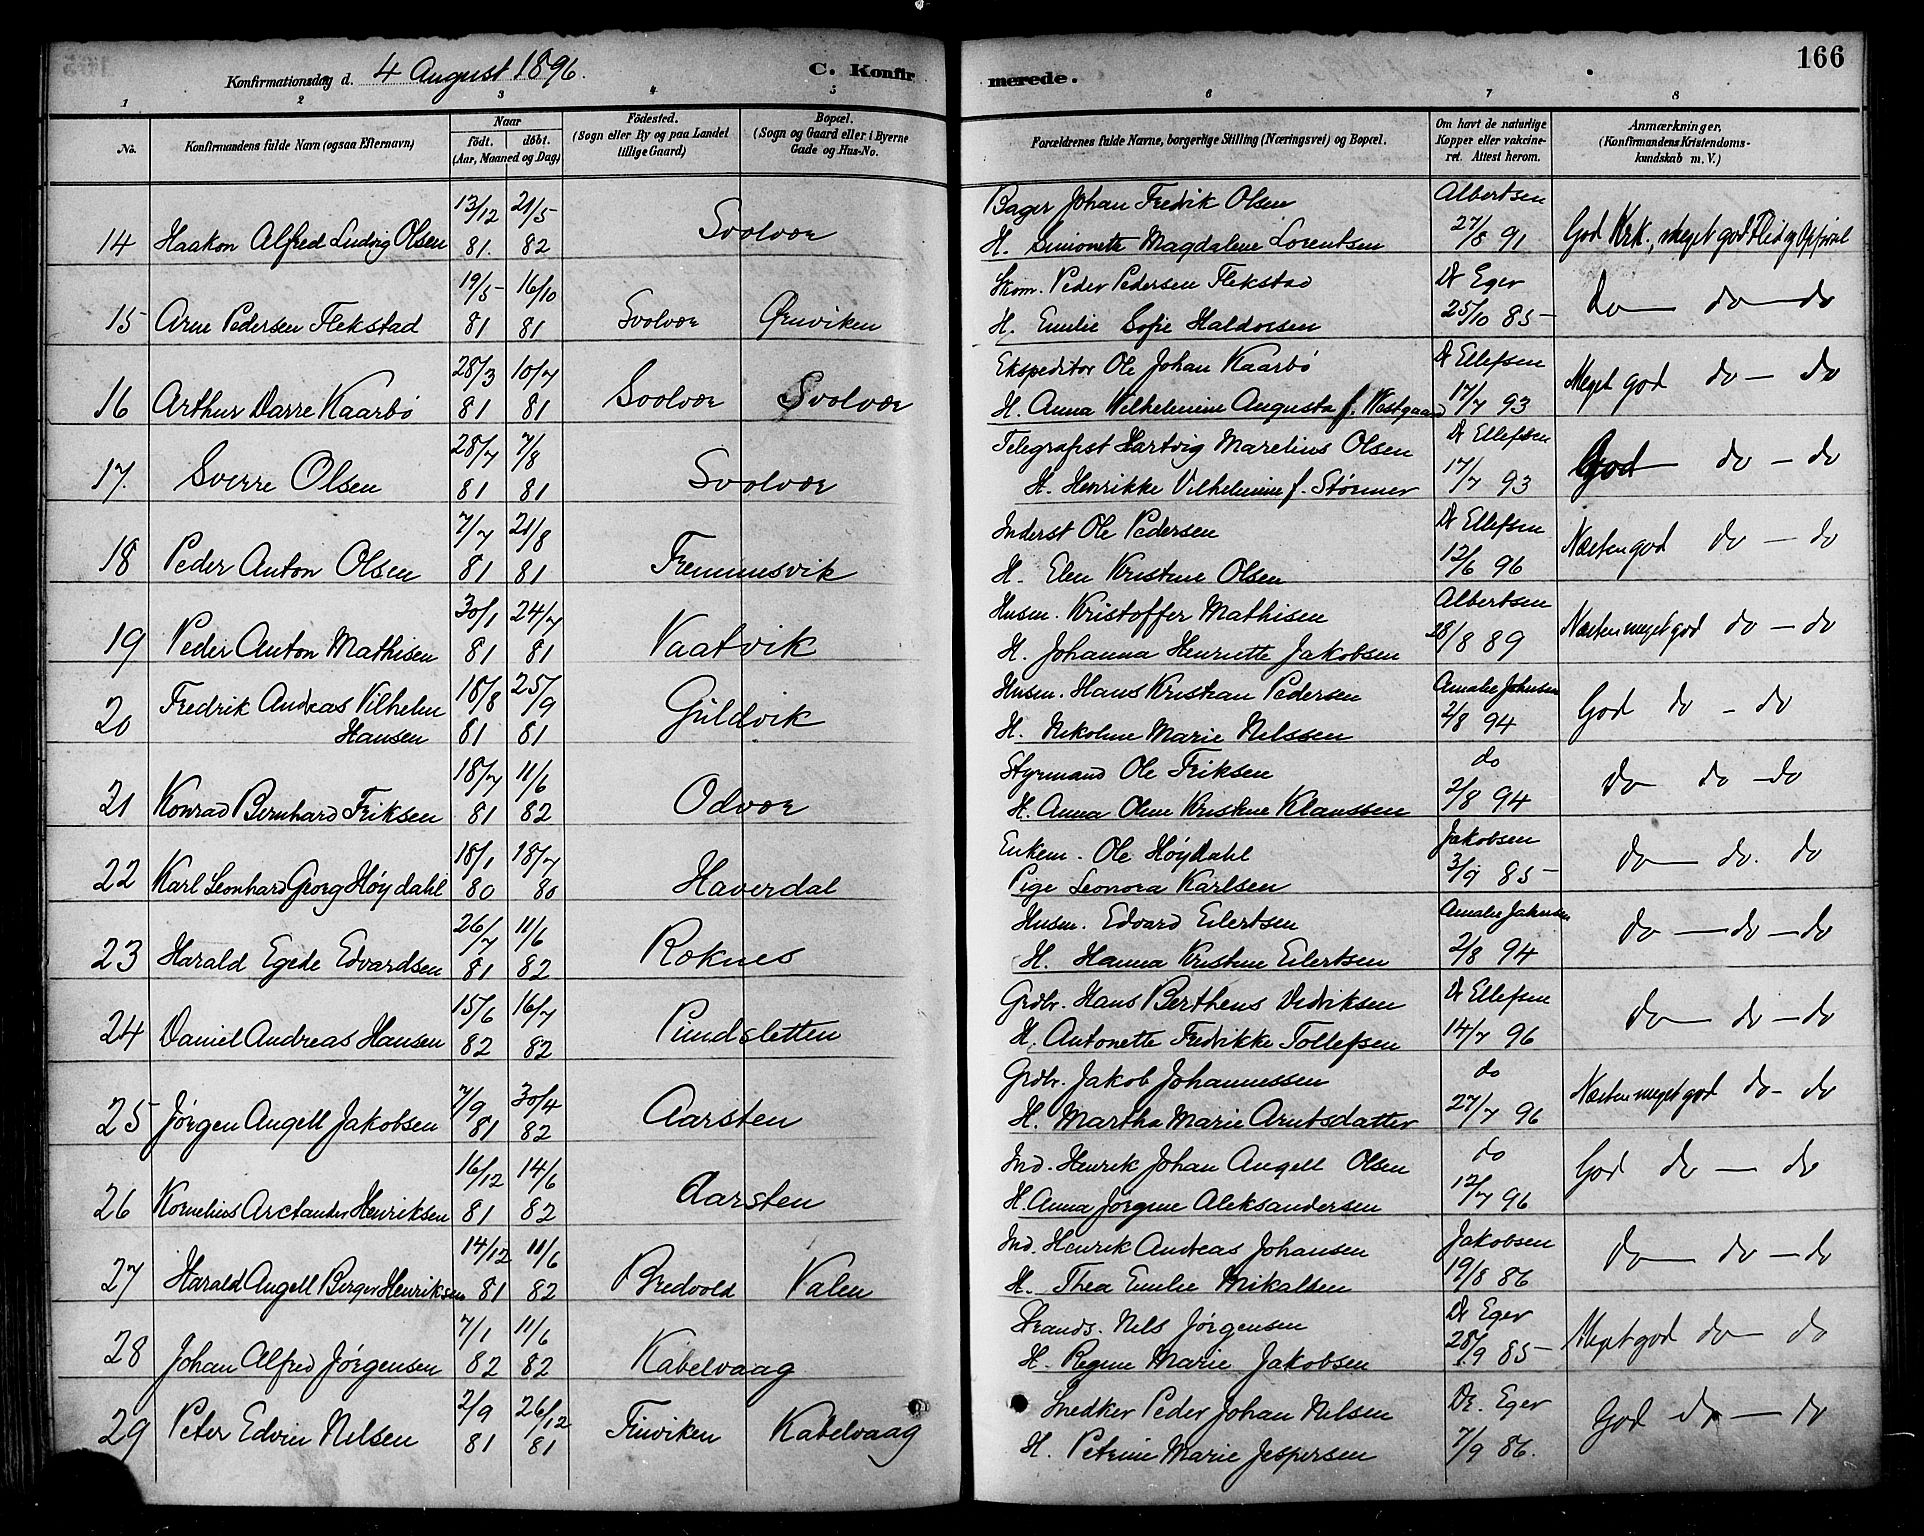 166
Konfirmationsdag d. 4 August 1896. C. Konfirmerede.
1 2 3 4 5 6 7 8
No. Konfirmandens fulde Navn (ogsaa Efternavn) Naar født. døbt. (Aar, Maaned og Dag) Fødested. (Sogn eller By og paa Landet tillige Gaard) Bopæl. (Sogn og Gaard eller i Byerne Gade og Hus-No.) Forældrenes fulde Navne, borgerlige Stilling (Næringsvei) og Bopæl. Om havt de naturlige Kopper eller vakcineret. Attest herom. Anmærkninger. (Konfirmandens Kristendomskundskab m. V.)
13/12 21/5 Bager Johan Fredrik Olsen Albertsen
14 Haakon Alfred Ludvig Olsen 81. 82 Svolvær H. Simonette Magdalene Lorentsen 27/8 91 God Krk., meget god Flid og Opførsel
19/5 16/10 Skom. Peder Pedersen Flekstad Dr Eger
15 Arne Pedersen Flekstad 81 81 Svolvær Ørnviken H. Emilie Sofie Haldorsen 25/10 85 do do do
28/3 10/7 Ekspeditør Ole Johan Kaarbø Dr Ellefsen
16 Arthur Darre Kaarbø 81 81 Svolvær Svolvær H. Anna Vilhelmine Augusta f. Westgaard 17/7 93 Meget god do do
28/7 7/8 Telegrafist Hartvig Marelius Olsen Dr Ellefsen
17. Sverre Olsen 81 81 Svolvær H. Henrikke Vilhelmine f. Størmer 17/7 93 God do do
7/7 21/8 Inderst Ole Pedersen Dr Ellefsen
18 Peder Anton Olsen 81 81 Fremmesvik H. Elen Kristine Olsen 12/6 96 Næsten god do do
30/1 24/7 Husm. Kristoffer Mathisen Albertsen
19 Peder Anton Mathisen 81 81 Vaatvik H. Johanna Henriette Jakobsen 28/8 89 Næsten meget god do do
Fredrik Andreas Vilhelm 18/8 25/9 Husm. Hans Kristian Pedersen Amalie Johnsen
20 Hansen 81 81 Guldvik H. Nikoline Marie Nilssen 2/8 94 God do do
18/7 11/6 Styrmand Ole Eriksen do
21 Konrad Bernhard Eriksen 81 82 Odvær H. Anna Oline Kristine Klaussen 2/8 94 do do do
18/1 18/7 Enkem. Ole Høydahl Jakobsen
22 Karl Leonhard Georg Høydahl 80 80 Haverdal Pige Leonora Karlsen 3/9 85 do do. do
26/7 11/6 Husm. Edvard Eilertsen Amalie Johnsen
23 Harald Egede Edvardsen 81 82 Roknes H. Hanna Kristine Eilertsen 2/8 94 do do do
15/6 16/7 Grdbr. Hans Bertheus Didriksen Dr Ellefsen
24 Daniel Andreas Hansen 82 82 Pundsletten H. Antonette Fredrikke Tollefsen 14/7 96 do do do
7/9 30/4 Grdbr. Jakob Johannessen do
25 Jørgen Angell Jakobsen 81 82 Aarsten H. Martha Marie Arntsdatter 27/7 96 Næsten meget god do do
16/12 14/6 Ind. Henrik Johan Angell Olsen do
26 Kornelius Arctander Henriksen 81 82 Aarsten H. Anna Jørgine Aleksandersen 12/7 96 God do do
14/12 11/6 Ind. Henrik Andreas Johansen Jakobsen
27 Harald Angell Berger Henriksen 81 82 Bredvold Valen H. Thea Emilie Mikalsen 19/8 86 do do do
7/1 11/6 Strands. Nils Jørgensen Dr Eger
28 Johan Alfred Jørgensen 82 82 Kabelvaag H. Regine Marie Jakobsen 28/9 85 Meget god do do
2/9 26/12 Snedker Peder Johan Nilsen Dr. Eger
29 Peter Edvin Nilsen 81 81 Finviken Kabelvaag H. Petrine Marie Jespersen 7/9 86. God do do